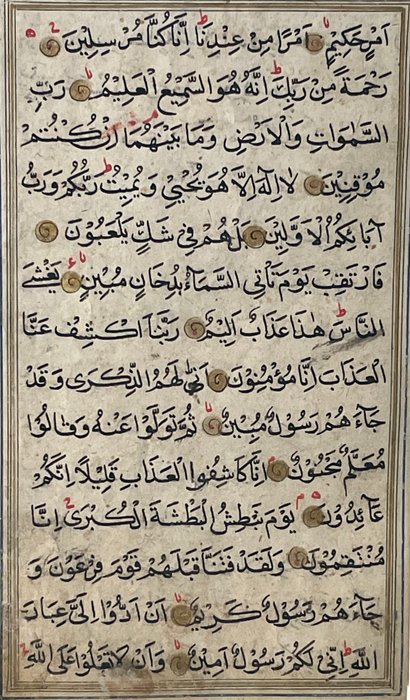 اَمْرٍ حَكِيمٍ اَمْرًا مِنْ عِنْدِنَا اِنَّا كُنَّا مُرْسِلِينَ
رَحْمَةً مِنْ رَبِّكَ اِنَّهُ هُوَ السَّمِيعُ الْعَلِيمُ رَبِّ
السَّمٰوَاتِ وَالْاَرْضِ وَمَا بَيْنَهُمَا اِنْ كُنْتُمْ
مُوقِنِينَ لَا اِلٰهَ اِلَّا هُوَ يُحْيِي وَيُمِيتُ رَبُّكُمْ وَرَبُّ
آبَائِكُمُ الْاَوَّلِينَ بَلْ هُمْ فِي شَكٍّ يَلْعَبُونَ
فَارْتَقِبْ يَوْمَ تَأْتِي السَّمَاءُ بِدُخَانٍ مُبِينٍ يَغْشَى
النَّاسَ هٰذَا عَذَابٌ اَلِيمٌ رَبَّنَا اكْشِفْ عَنَّا
الْعَذَابَ اِنَّا مُؤْمِنُونَ اَنّٰى لَهُمُ الذِّكْرٰى وَقَدْ
جَاءَهُمْ رَسُولٌ مُبِينٌ ثُمَّ تَوَلَّوْا عَنْهُ وَقَالُوا
مُعَلَّمٌ مَجْنُونٌ اِنَّا كَاشِفُوا الْعَذَابِ قَلِيلًا اِنَّكُمْ
عَائِدُونَ يَوْمَ نَبْطِشُ الْبَطْشَةَ الْكُبْرٰى اِنَّا
مُنْتَقِمُونَ وَلَقَدْ فَتَنَّا قَبْلَهُمْ قَوْمَ فِرْعَوْنَ وَ
جَاءَهُمْ رَسُولٌ كَرِيمٌ اَنْ اَدُّوا اِلَيَّ عِبَادَ
اللّٰهِ اِنِّي لَكُمْ رَسُولٌ اَمِينٌ وَاَنْ لَا تَعْلُوا عَلَى اللّٰهِ